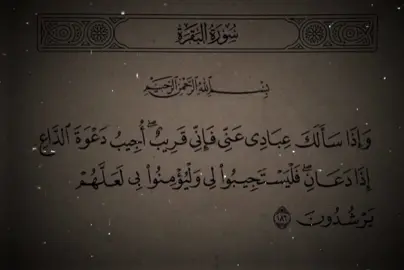 سُورَةُ البَقَرَةِ
بِسْمِ اللَّهِ الرَّحْمَٰنِ الرَّحِيمِ
وَإِذَا سَأَلَكَ عِبَادِى عَنِّى فَإِنِّى قَرِيبٌ ۖ أُجِيبُ دَعْوَةَ ٱلدَّاعِ
إِذَا دَعَانِ ۖ فَلْيَسْتَجِيبُوا۟ لِى وَلْيُؤْمِنُوا۟ بِى لَعَلَّهُمْ
يَرْشُدُونَ ١٨٦